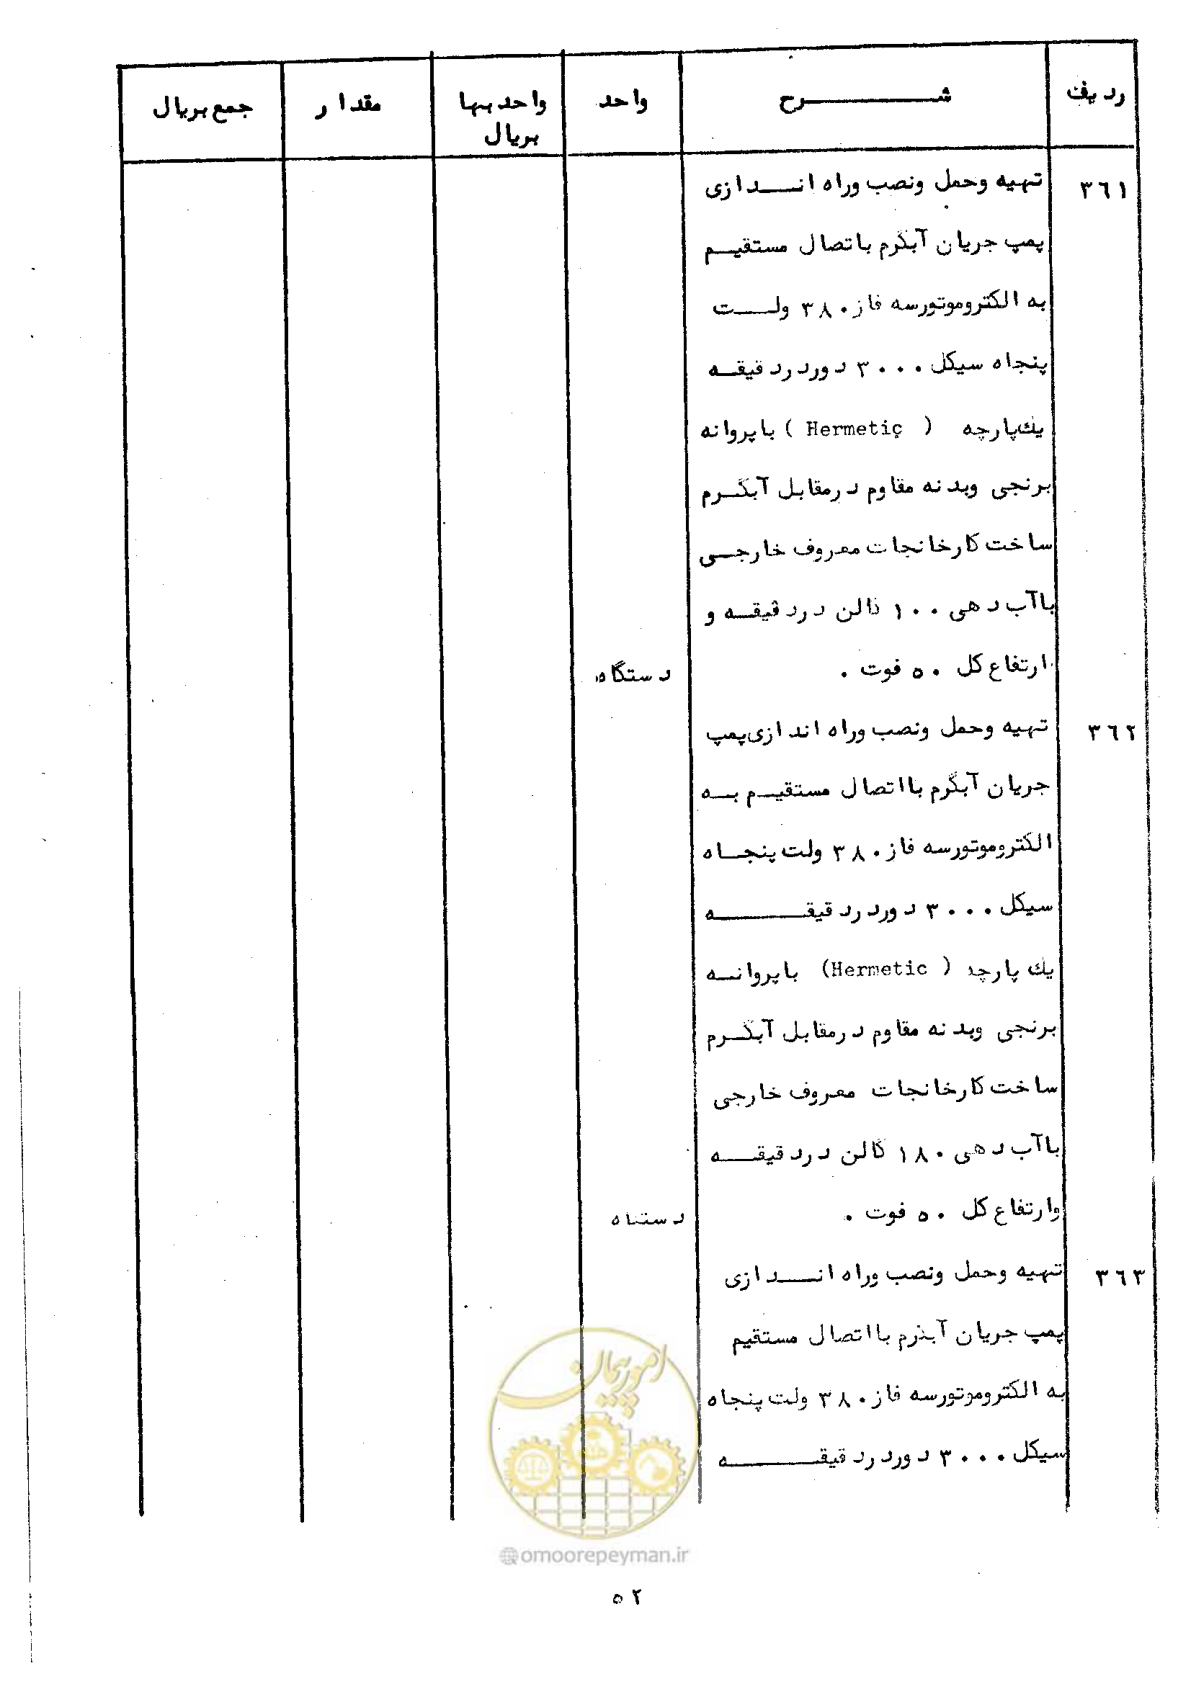 ردیف شرح واحد واحدبها مقدار جمع بریال
بریال
۳۶۱ تهیه وحمل ونصب وراه اندازی
پمپ جریان آبگرم باتصال مستقیم
به الکتروموتورسه فاز ۳۸۰ ولت
پنجاه سیکل ۳۰۰۰ دوردردقیقه
یك پارچه ( Hermetic ) باپروانه
برنجی وبدنه مقاوم درمقابل آبگرم
ساخت کارخانجات معروف خارجی
باآب دهی ۱۰۰ گالن دردقیقه و
ارتفاع کل ۵۰ فوت . دستگاه
۳۶۲ تهیه وحمل ونصب وراه اندازی پمپ
جریان آبگرم بااتصال مستقیم به
الکتروموتورسه فاز ۳۸۰ ولت پنجاه
سیکل ۳۰۰۰ دوردردقیقه
یك پارچه ( Hermetic ) باپروانه
برنجی وبدنه مقاوم درمقابل آبگرم
ساخت کارخانجات معروف خارجی
باآب دهی ۱۸۰ گالن دردقیقه
وارتفاع کل ۵۰ فوت . دستگاه
۳۶۳ تهیه وحمل ونصب وراه اندازی
پمپ جریان آبگرم بااتصال مستقیم
به الکتروموتورسه فاز ۳۸۰ ولت پنجاه
سیکل ۳۰۰۰ دوردردقیقه
امور پیمان
@omoorepeyman.ir
۵۲